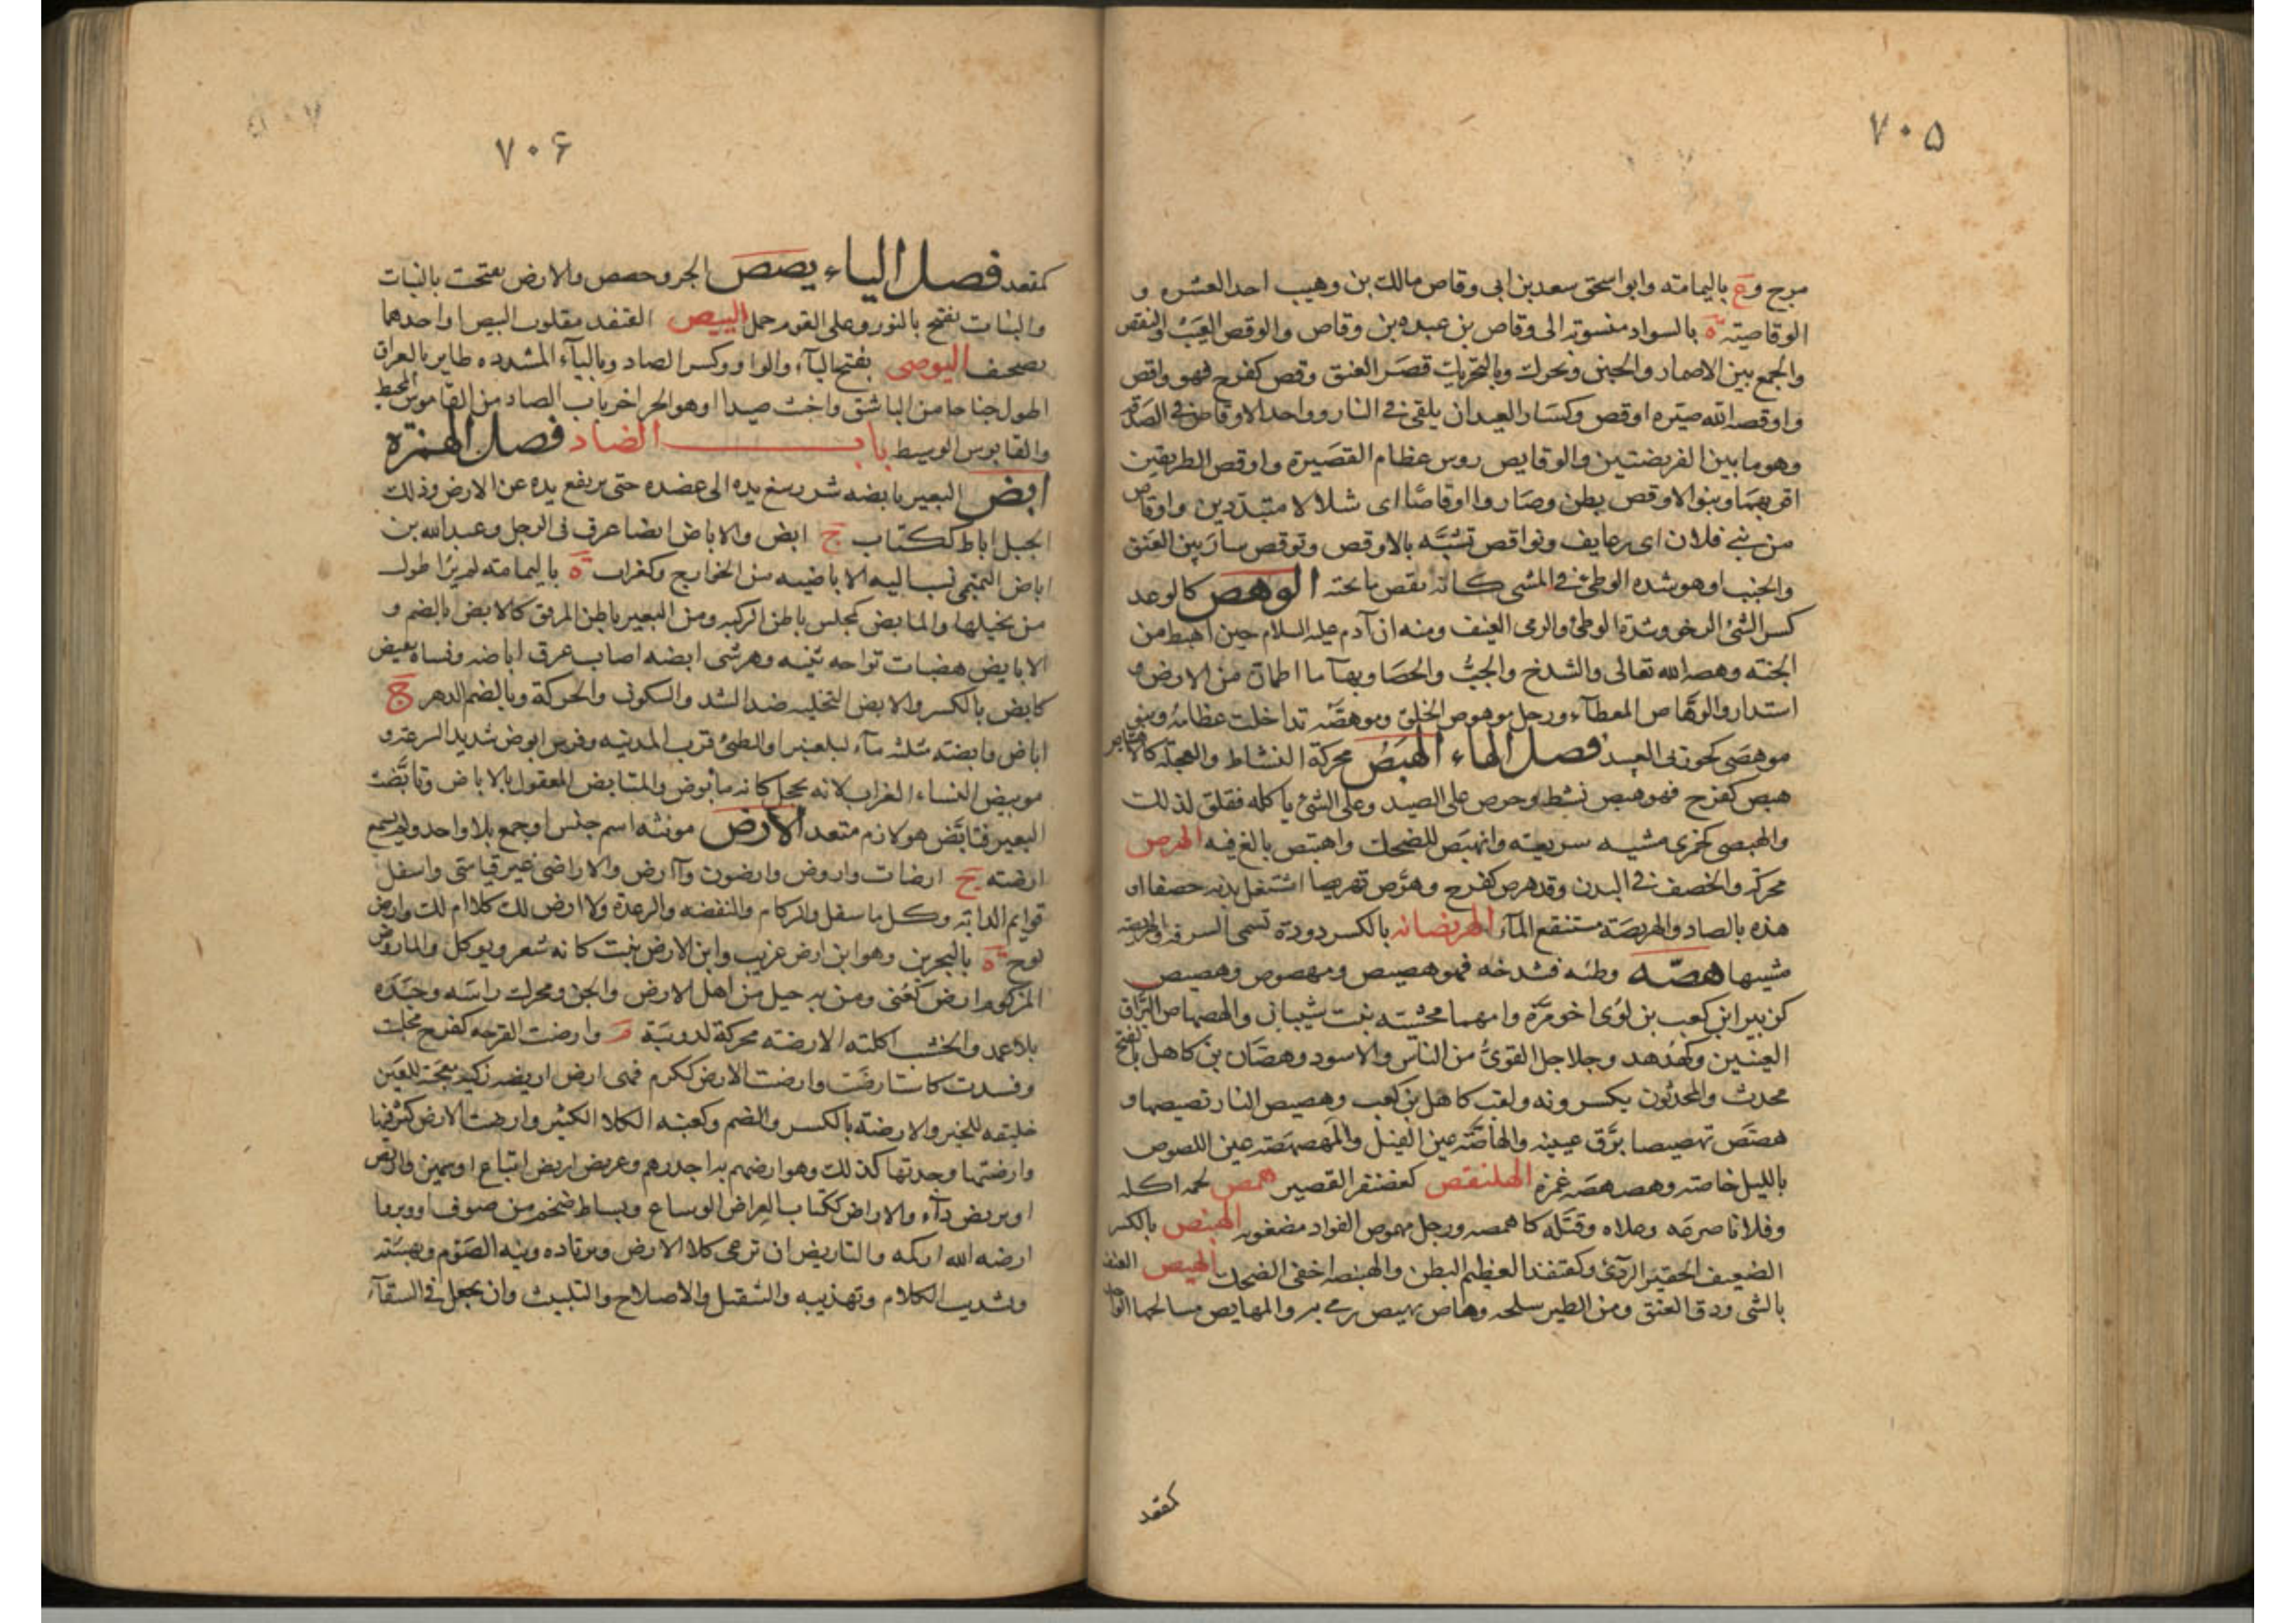 ٧٠۵
مرج وع باليمامته وابو اسحق سعد بن ابى وقاص مالك بن وهيب احد العشره و
الوقاصيته ة بالسواد منسوبة الى وقاص بن عبده بن وقاص والوقص العيب والنقص
والجمع بين الاضمار والخبن ونحرك وبالتحريك قصر العنق وقص كفرح فهو واقص
واوقصه الله صيره اوقص وكسار العيدان يلقى فى النار وواحد الاوقاص فى الصدقه
وهو ما بين الفريضتين والوقايص روس عظام القصيرة واوقص الطريقين
اقربهما وبنو الاوقص بطن وصاروا اوقاصا اى شلالا متبددين واوقاص
من بنى فلان اى زعايف وتواقص تشبه بالاوقص وتوقص سار بين العنق
والخبب او هو شده الوطئ فى المشى كانه يقص ما تحته الوهص كالوعد
كسر الشئ الرخو وشدة الوطئ والرمى العنيف ومنه ان آدم عليه السلام حين اهبط من
الجنته وهصه الله تعالى والشدخ والجب والخصا وبهآ ما اطمان من الارض و
استدار والوهاص المعطآء ورجل موهوص الخلق وموهصه تداخلت عظامه وبنو
موهصى كخوزلى العبيد فصل الهاء الهبص محركة النشاط والعجلة كالاهتباص
هبص كفرح فهو هبص نشط وحرص على الصيد وعلى الشئ ياكله فقلق لذلك
والهبصى كجزى مشيه سريعته وانهبص للضحك واهتبص بالغ فيه الهرص
محركة والخصف فى البدن وقد هرص كفرح وهرص تهريصا اشتعل بدنه حصفا او
هذه بالصاد والهريصة مستنقع المآء الهرنصانه بالكسر دودة تسمى السرفه والهرنصه
مشيها هصه وطئه فشدخه فهو هصيص ومهصوص وهصيص
كزبير ابن كعب بن لؤى اخو مرة وامهما مخشيته بنت شيبانى والهصهاص البراق
العينين وكهدهد وجلاجل القوى من الناس والاسود وهصان بن كاهل بالفتح
محدث والمحدثون يكسرونه ولقب كاهل بن كعب وهصيص النار تصيصها و
هصص تهصيصا برق عينيه والهاصة عين الفيل والمهصهصته عين اللصوص
بالليل خاصته وهصهصه غمزه الهلنقص كغضنفر القصير همص لحمه اكله
وفلانا صرعه وعلاه وقتله كاهمصه ورجل مهموص الفواد مضغوبه الهنبص بالكسر
الضعيف الحقير الردئ وكقنفذ العظيم البطن والهنبصه اخفى الضحك الهيص العنف
بالشى ودق العنق ومن الطير سلحه وهاص يهيص رمى به والمهايص مسالحها الواحد
كمقعد
٧٠۶
كمقعد فصل الياء يصص الجرو حصص والارض تفتحت بالنبات
والنبات تفتح بالنور وعلى القوم حمل الييص القنفذ مقلوب البيص او احدهما
تصحيف اليوصى بفتح اليآء والواو وكسر الصاد وباليآء المشدده طاير بالعراق
اطول جناحا من الباشق واخبث صيدا او هو الحر اخر باب الصاد من القاموس المحيط
والقابوس الوسيط باب الضاد فصل الهمزه
ابض البعير يابضه شد رسغ يده الى عضده حتى يرتفع يده عن الارض وذلك
الحبل اباط ككتاب ج ابض والاباض ايضا عرق فى الرجل وعبد الله بن
اباض التميمى نسب اليه الاباضيه من الخوارج وكغراب ة باليمامته لم ير اطول
من نخيلها والمابض كمجلس باطن الركبه ومن البعير باطن المرفق كالابض بالضم و
الابايض هضبات تواجه ثنيه وهرشى ابضه اصاب عرق اباضه ونساه تقبض
كابض بالكسر والابض التخليه ضد الشد والسكون والحركة وبالضم الدهر ج
اباض وابضته مثلثه مآء لبلعنبر او لطئ قرب المدينه وفرس ابوض شديد السرعة و
موبيض النساء الغراب لانه يحجل كانه مابوض والمتابض المعقول بالاباض وتابضت
البعير فتابض هو لازم متعد الارض مونثه اسم جنس او جمع بلا واحد ولم يسمع
ارضته ج ارضات واروض وارضون وآارض والاراضى غير قياسى واسفل
قوايم الدابة وكل ما سفل والزكام والنفضه والرعدة ولا ارض لك كلا ام لك وارض
نوح ة بالبحرين وهو ابن ارض غريب وابن الارض نبت كانه شعر ويوكل والماروض
المزكوم ارض كعنى ومن به خبل من اهل الارض والجن ومحرك راسه وجسده
بلا عمد والخشب اكلته الارضته محركة لدويبة م وارضت القرحه كفرح مجلت
وفسدت كاستارضت وارضت الارض ككرم فهى ارض اريضه زكيه معجبة للعين
خليقه للخير والارضته بالكسر والضم وكعنبه الكلاء الكثير وارضت الارض كثر فيها
وارضتها وجدتها كذلك وهو ارضهم به اجدرهم وعريض اريض اتباع او سمين والارض
او يربض دآء والاراض ككتاب العراض الوساع وبساط ضخم من صوف او وبر وا
ارضه الله ازكمه والتاريض ان ترعى كلا الارض وترتاده ونيه الصوم وتهيئته
وتشديب الكلام وتهذيبه والتثقيل والاصلاح والتلبيث وان يجعل فى السقآء